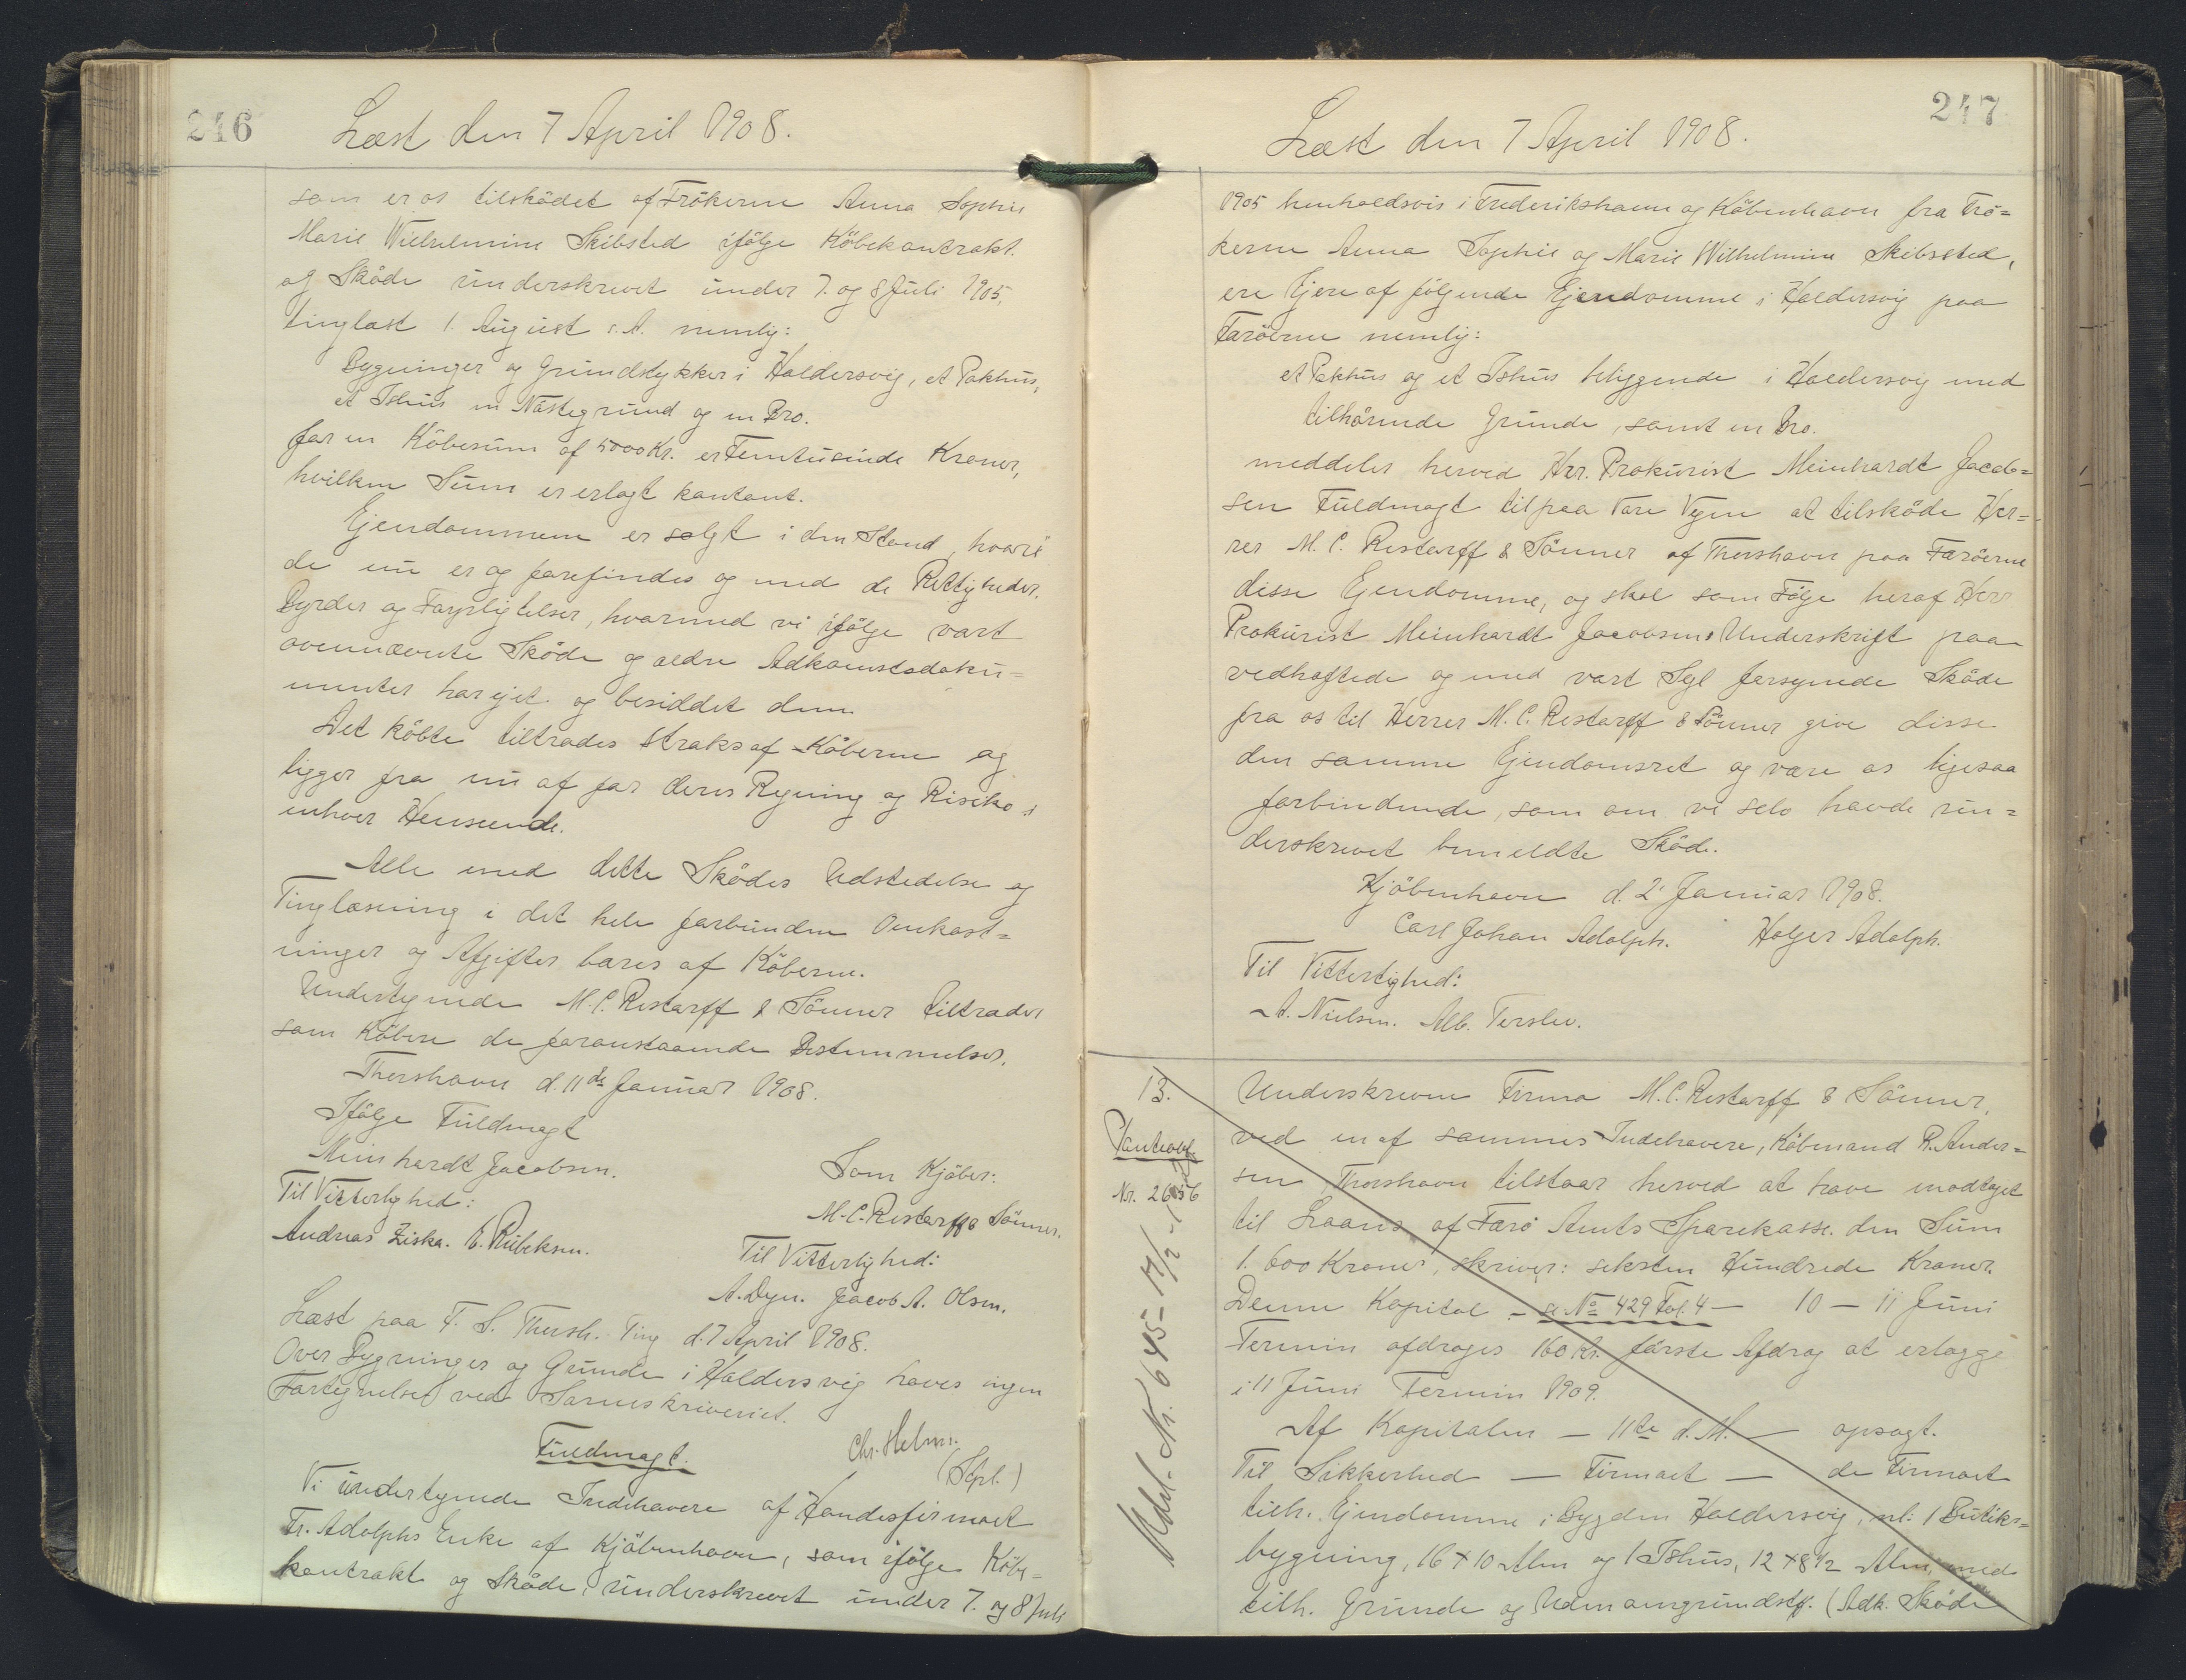 246
Læst den 7 April 1908.
som er os tilsködet af Frökerne Anna Sophie
Marie Wilhelmine Skibsted ifölge Köbekontrakt
og Sköde underskrevet under 7. og 8 Juli 1905,
tinglæst 1. August s. A. nemlig:
Bygninger og Grundstykker i Haldersvig, et Pakhus,
et Ishus en Næstegrund og en Bro.
for en Köbesum af 5000 Kr. er Femtusinde Kroner,
hvilken Sum er erlagt kontant.
Ejendommene er solgt i den Stand, hvori
de nu er og forefindes og med de Rettigheder,
Byrder og Forpligtelser, hvormed vi ifölge vort
ovennævnte Sköde og ældre Adkomstdoku-
menter har ejet og besiddet dem.
Det köbte tiltrædes straks af Köberne og
ligger fra nu af for deres Regning og Risiko i
enhver Henseende.
Alle med dette Sködes Udstedelse og
Tinglæsning i det hele forbundne Omkost=
ninger og Afgifter bæres af Köberne.
Undertegnede M. C. Restorff & Sönner tiltræder
som Köbere de foranstaaende Bestemmelser.
Thorshavn d. 11de Januar 1908.
Ifölge Fuldmagt
Meinhardt Jacobsen.
Som Kjöber:
M. C. Restorff & Sönner.
Til Vitterlighed:
Andreas Ziska. E. Rübeksen.
Til Vitterlighed:
A. Dyn. Jacob A. Olsen.
Læst paa F. S. Thorsh. Ting d. 7 April 1908.
Over Bygninger og Grunde i Haldersvig haves ingen
Fortegnelse ved Sorenskriveriet.
Chr. Helm.
(Sgl.)
Fuldmagt.
Vi undertegnede Indehavere af Handesfirmaet
Fr. Adolphs Enke af Kjöbenhavn, som ifölge Köbe=
kontrakt og Sköde, underskrevet under 7. og 8 Juli
247
Læst den 7 April 1908.
1905 henholdsvis i Frederikshavn og Köbenhavn fra Frö=
kerne Anna Sophie og Marie Wilhelmine Skibsted,
ere Ejere af fölgende Ejendomme i Haldersvig paa
Færöerne nemlig:
et Pakhus og et Ishus beliggende i Haldersvig med
tilhörende Grunde, samt en Bro.
meddeler herved Hrr. Prokurist Meinhardt Jacob=
sen Fuldmagt til paa vore Vegne at tilsköde Her=
rer M. C. Restorff & Sönner af Thorshavn paa Færöerne
disse Ejendomme, og skal som Fölge heraf Herr
Prokurist Meinhardt Jacobsens Underskrift paa
vedhæftede og med vort Segl forsynede Sköde
fra os til Herrer M. C. Restorff & Sönner give disse
den samme Ejendomsret og være os ligesaa
forbindende, som om vi selv havde un=
derskrevet bemeldte Sköde.
Kjöbenhavn d. 2' Januar 1908.
Carl Johan Adolph. Holger Adolph.
Til Vitterlighed:
A. Nielsen. Alb. Terslev.
13.
Panteobl.
Nr. 2656
Underskrevne Firma M. C. Restorff & Sönner,
ved en af sammes Indehavere, Köbmand R. Ander=
sen Thorshavn tilstaar herved at have modtaget
til Laans af Færö Amts Sparekasse den Sum
1.600 Kroner, skriver: seksten Hundrede Kroner.
Denne Kapital - se No 429 Fol. 4 — 10 — 11 Juni
Termin afdrages 160 Kr. förste Afdrag at erlægge
i 11 Juni Termin 1909.
Af Kapitalen — 11te d. M. — opsagt.
Til Sikkerhed — Firmaet — de Firmaet
tilh. Ejendomme i Bygden Haldersvig, nl: 1 Butiks=
bygning, 16 x 10 Alen og 1 Ishus, 12 x 8 1/2 Alen, med
tilh. Grunde og Udenomgrundstk. (Adk. Sköde
Udsl. Nr. 645- 17/2